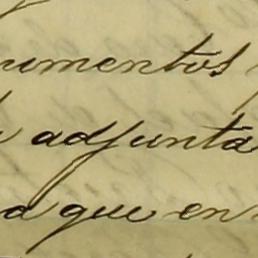 umentos
adjunta
que en